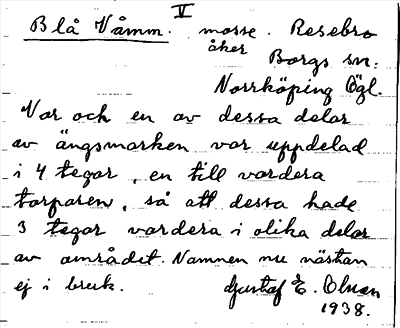 V
Blå Våmm. mosse. Resebro
åker Borgs sn:
Norrköping Ögl.
Var och en av dessa delar
av ängsmarken var uppdelad
i 4 tegar, en till vardera
torparen, så att dessa hade
3 tegar vardera i olika delar
av området. Namnen nu nästan
ej i bruk. Gustaf E. Olsson
1938.